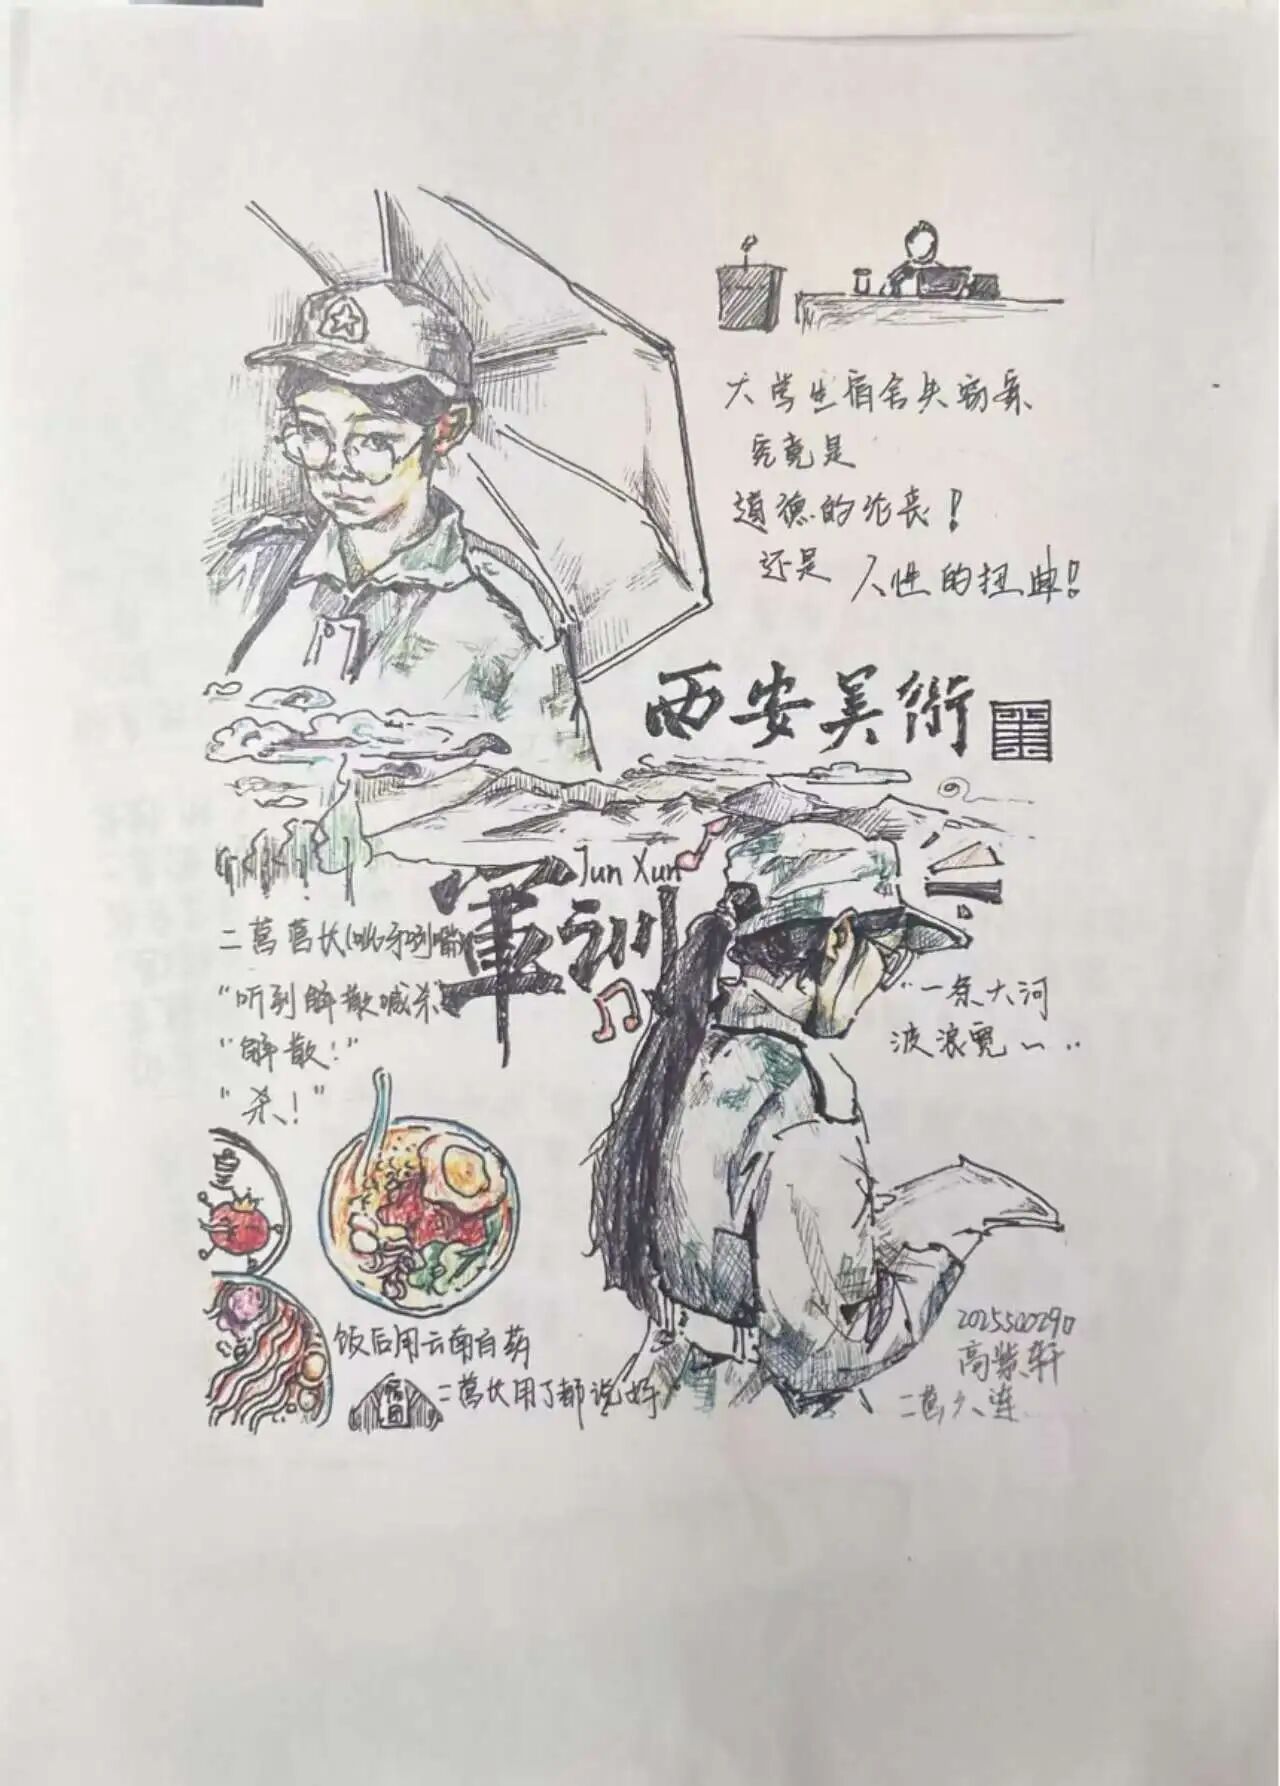 大学生宿舍失窃案
究竟是
道德的沦丧！
还是 人性的扭曲！
西安美術
Jun Xun
軍训
二营营长(呲牙咧嘴)
“听到解散喊杀”
“解散！”
“杀！”
“一条大河
波浪宽～..
饭后用云南白药
二营长用了都说好
2025500290
高紫轩
二营六连